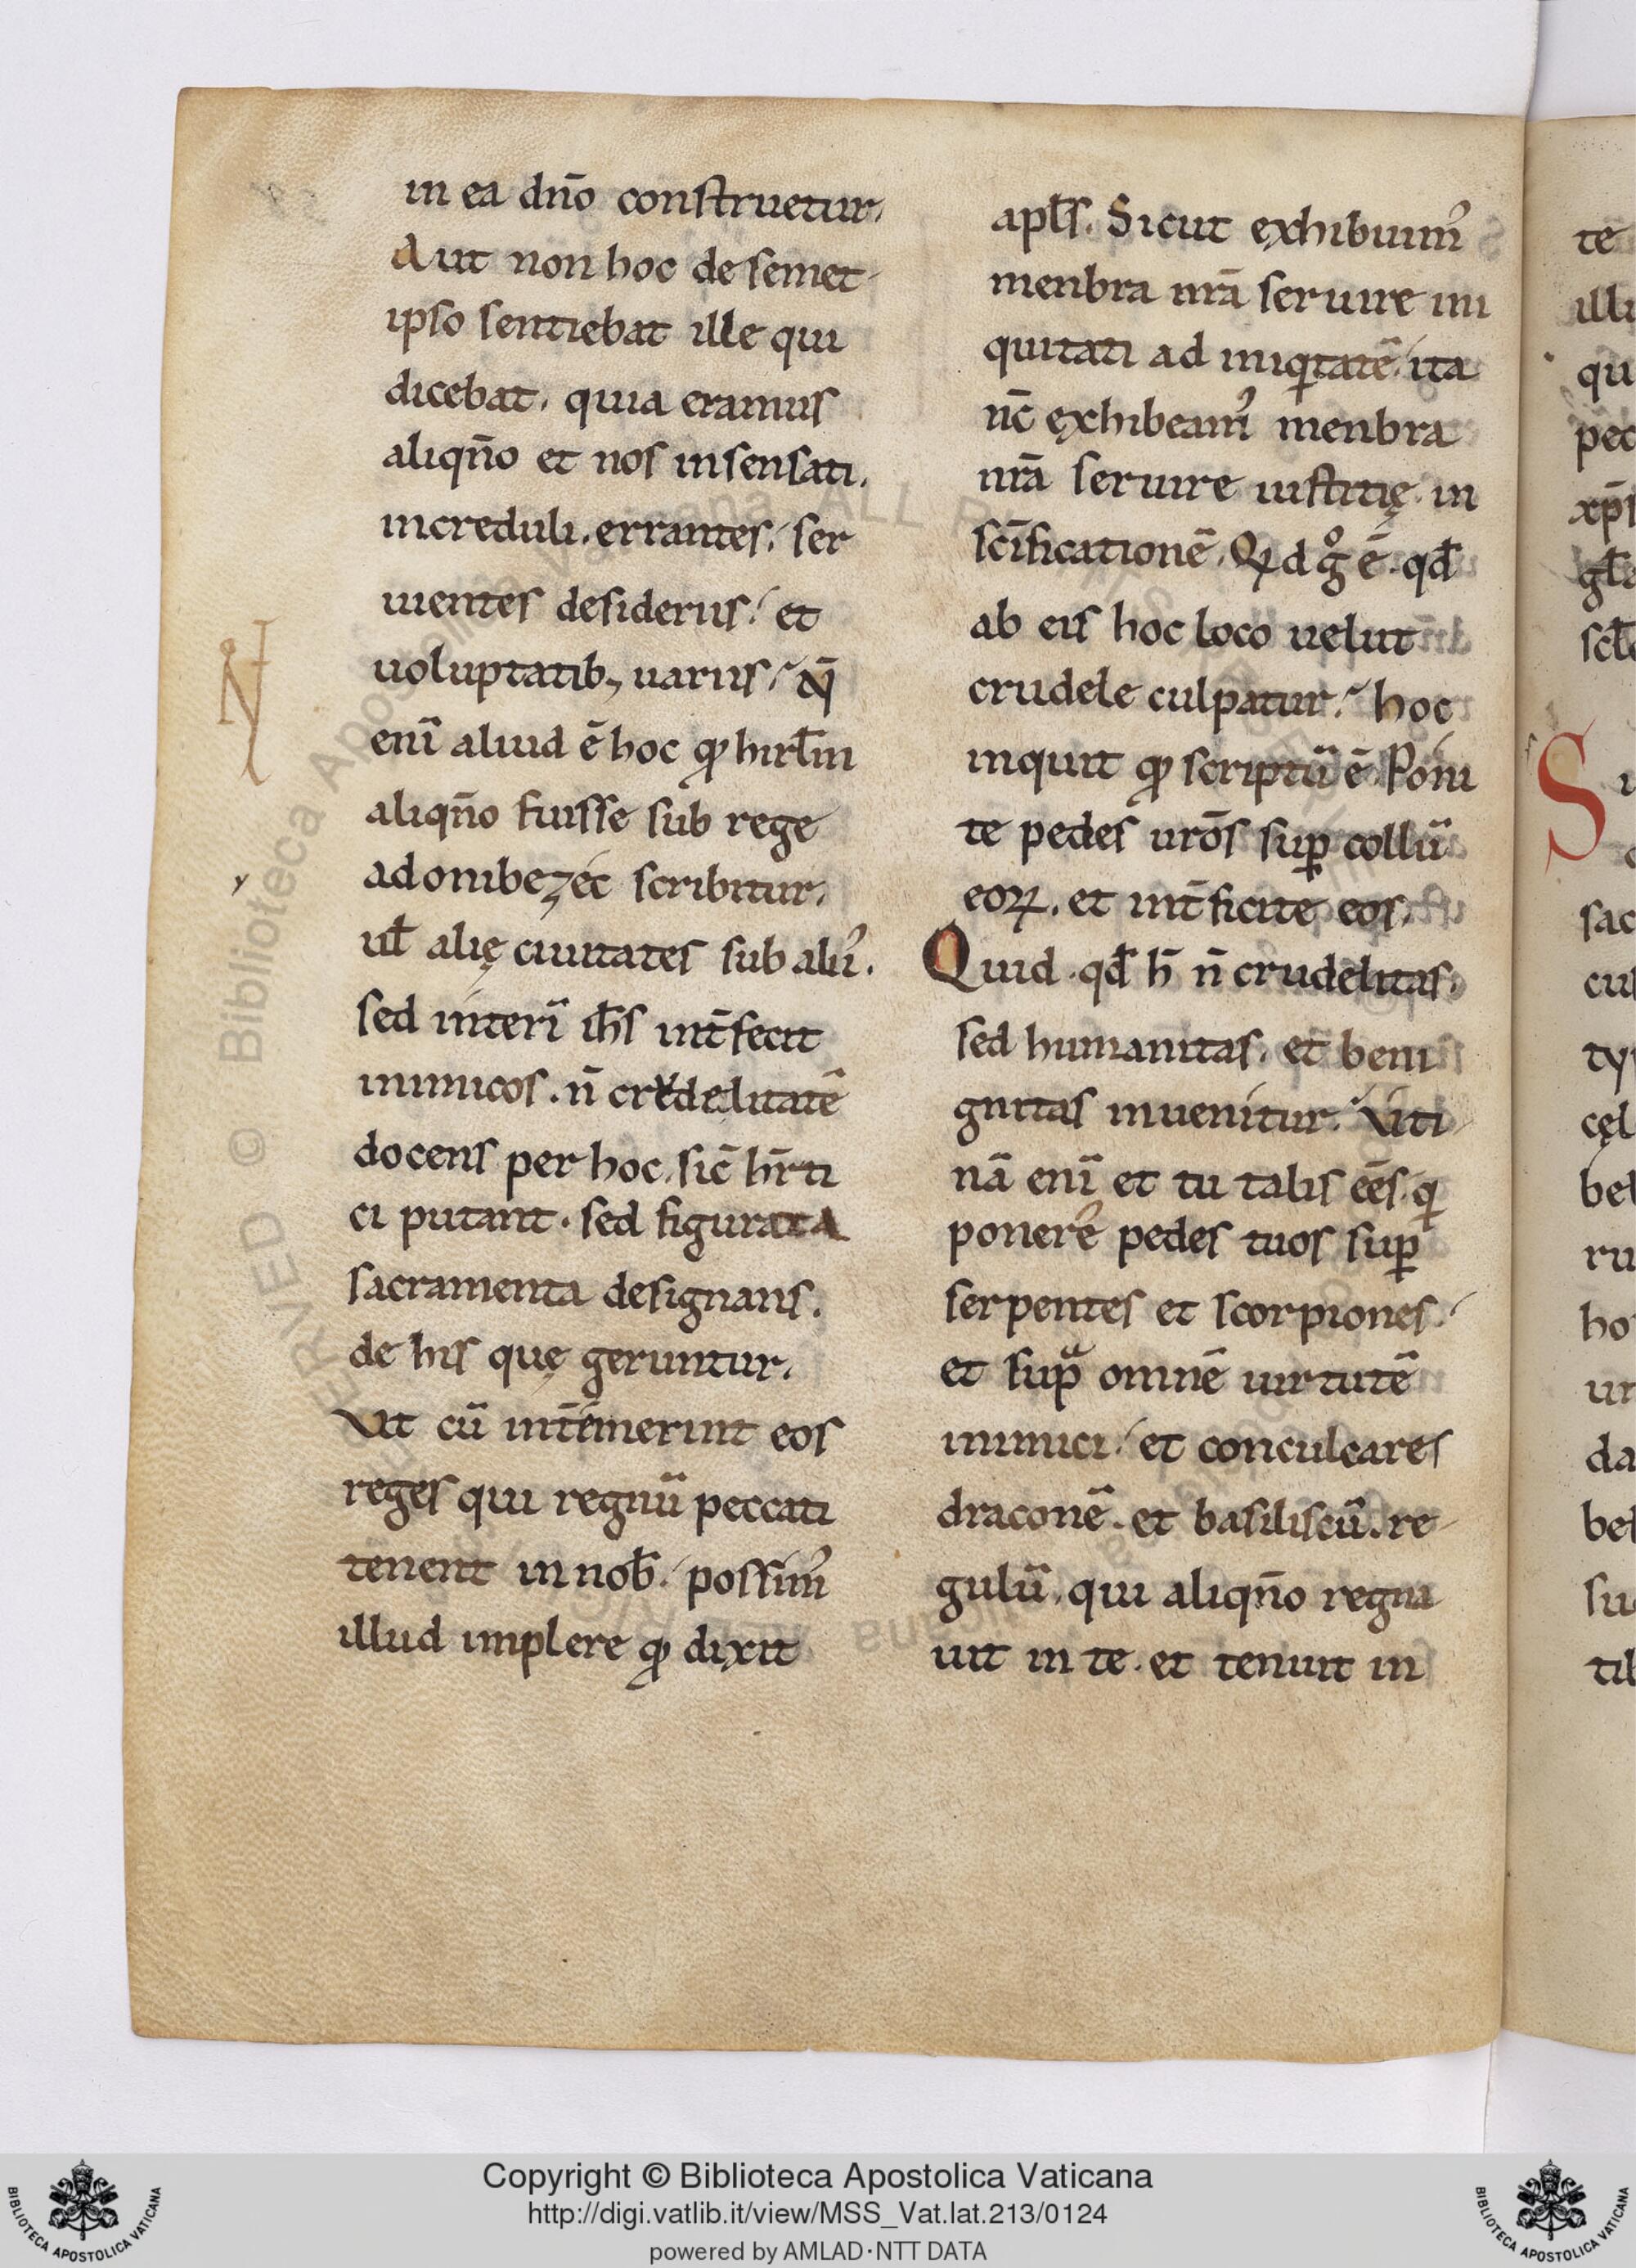 in ea dn̄o construetur.
Aut non hoc de semet
ipso sentiebat ille qui
dicebat. quia eramus
aliqn̄o et nos insensati.
increduli. errantes. ser
uientes desideriis. et
uoluptatib; uariis. N̄
enī aliud ē hoc qđ hirƚm
aliqn̄o fuisse sub rege
adonibezec scribitur.
uƚ alię ciuitates sub aliis.
sed interī ih̄s int̄fecit
inimicos. n̄ crudelitatē
docens per hoc. sic̄ hr̄ti
ci putant. sed figurata
sacramenta designans.
de his quę geruntur.
Vt cū int̄emerint eos
reges qui regnū peccati
tenent in nob̄. possim᾽
illud implere qđ dixit
apƚs. Sicut exhibuim᾽
menbra nr̄a seruire ini
quitati ad iniqͥtatē. ita
nc̄ exhibeam᾽ menbra
nr̄a seruire iustitię. in
sc̄ificationē. Qͥd gͦ ē. qđ
ab eis hoc loco uelut
crudele culpatur. hoc
inquit qđ scriptū ē. Poni
te pedes ur̄os suꝑ collū
eoꝝ. et int̄ficite eos.
Quid. qđ h̄ n̄ crudelitas.
sed humanitas. et beni
gnitas inuenitur. Vti
nā enī et tu talis ēēs. qͥ
poneres pedes tuos suꝑ
serpentes et scorpiones.
et supͣ omnē uirtutē
inimici. et conculcares
draconē. et basiliscū. re
gulū. qui aliqn̄o regna
uit in te. et tenuit in
te
illi
qu
pec
xp̄i
gƚa
S
sac
cul
ty
cęl
bel
ru
ho
ur
da
bel
su
til
Copyright © Biblioteca Apostolica Vaticana
http://digi.vatlib.it/view/MSS_Vat.lat.213/0124
powered by AMLAD·NTT DATA
BIBLIOTECA APOSTOLICA VATICANA
BIBLIOTECA APOSTOLICA VATICANA